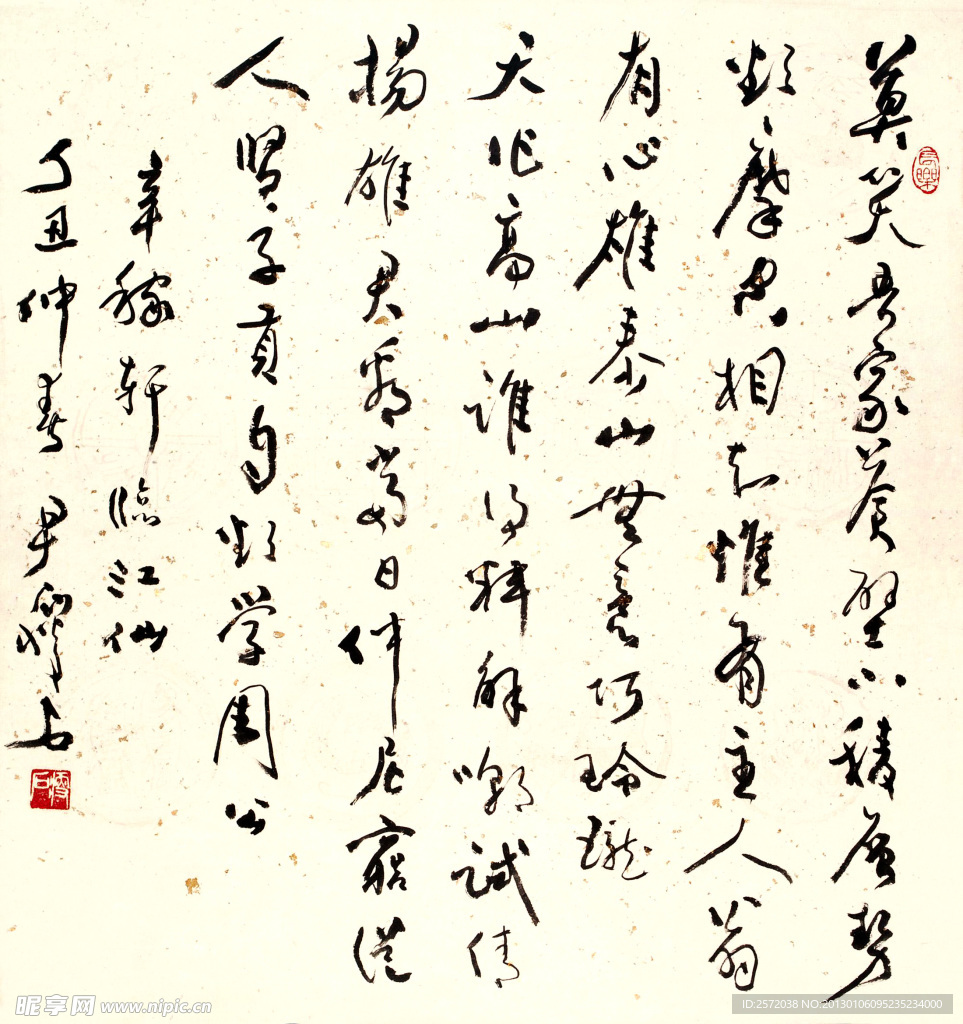 莫笑吾家蒼壁小稜層勢
欲摩空相知惟有主人翁
有心雄泰山無意巧玲瓏
天作高山誰得料解嘲試倩
揚雄君看當日仲尼窮從
人賢子貢自欲學周公
辛稼軒臨江仙
丁丑仲春 尹瘦石
昵享网 www.nipic.cn
ID:2572038 NO:20130106095235234000